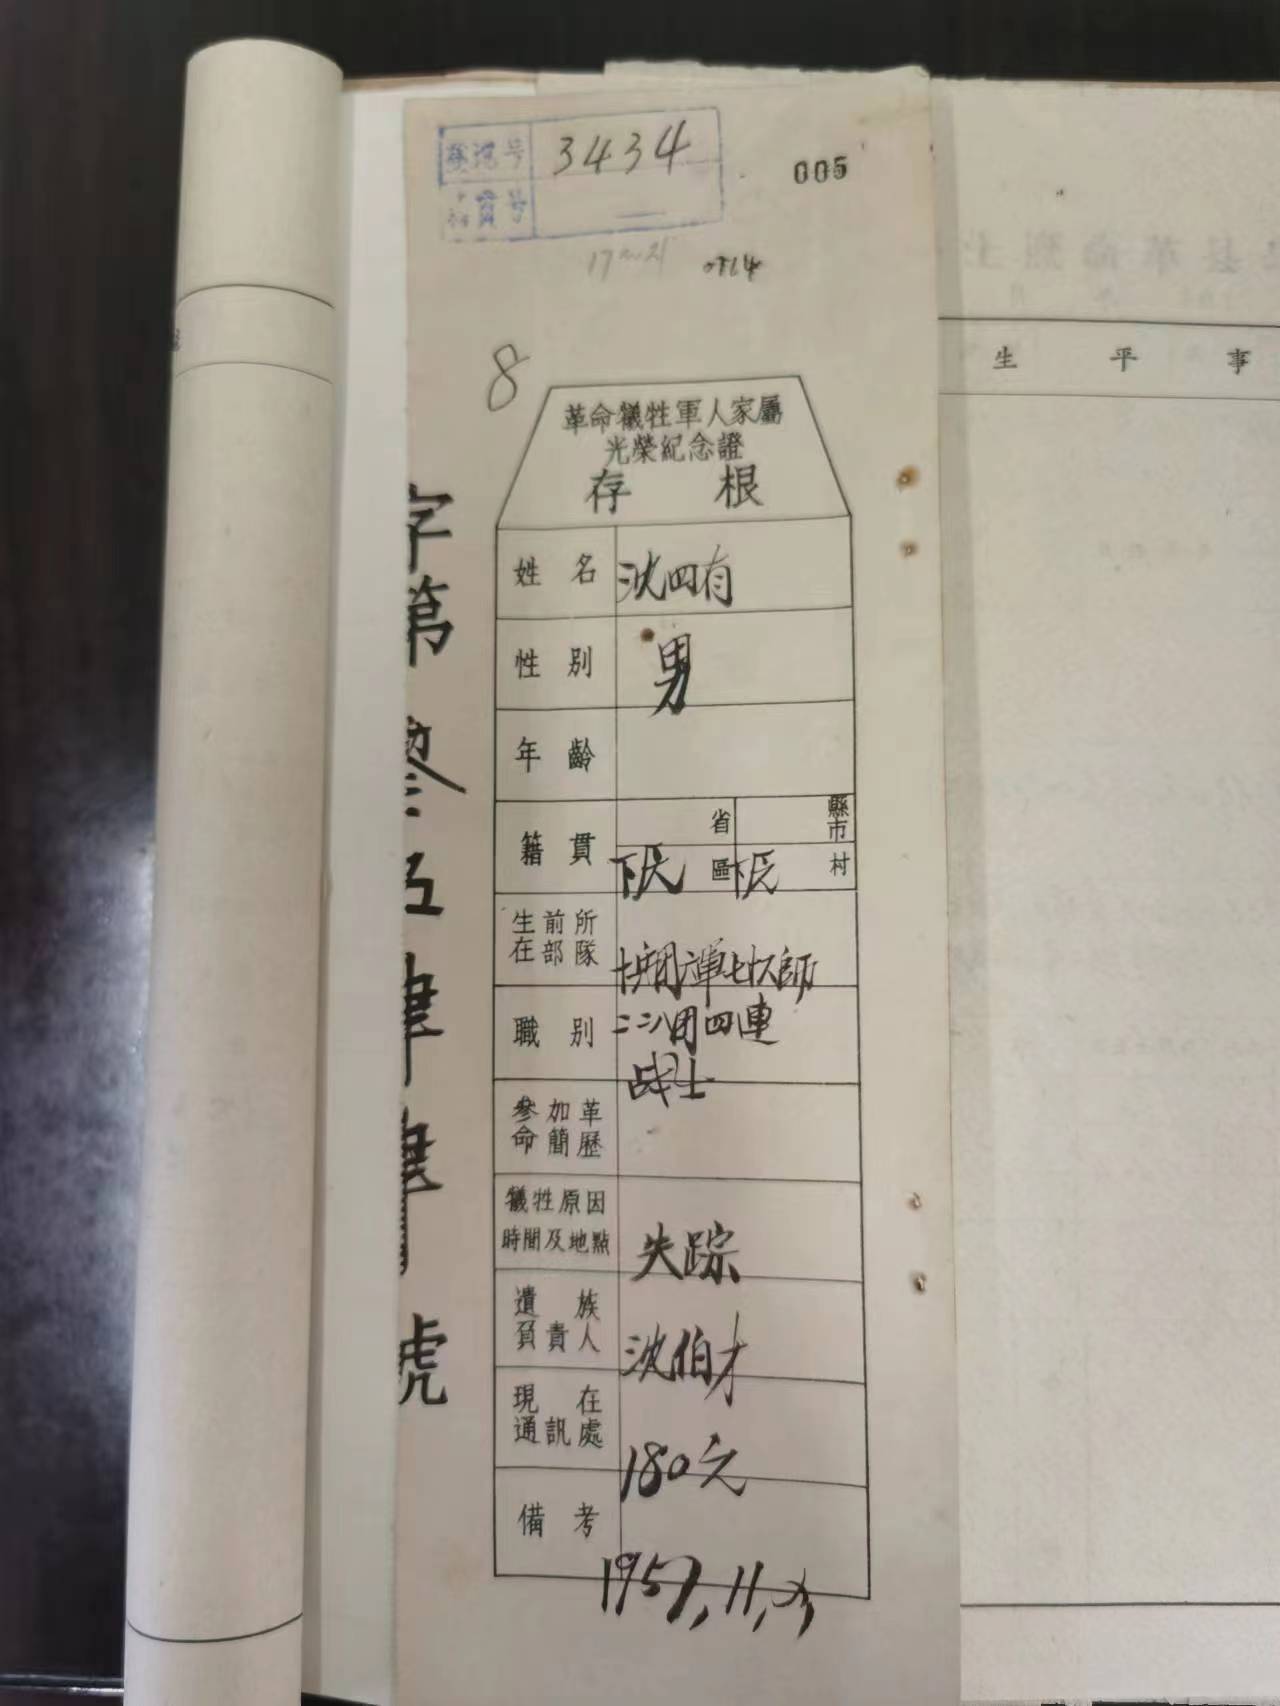 登记号 3434
号
005
17
8
革命犧牲軍人家屬
光榮紀念證
存根
姓名 沈四有
性別 男
年齡
籍貫 省 縣市
區 村
生前所在部隊 十兵团 軍七十八師
職別 二二八团四連
战士
參加革命簡歷
犧牲原因時間及地點 失踪
遺族負責人 沈伯才
現在通訊處 180元
備考
1957,11,
字第 五 號
生平事